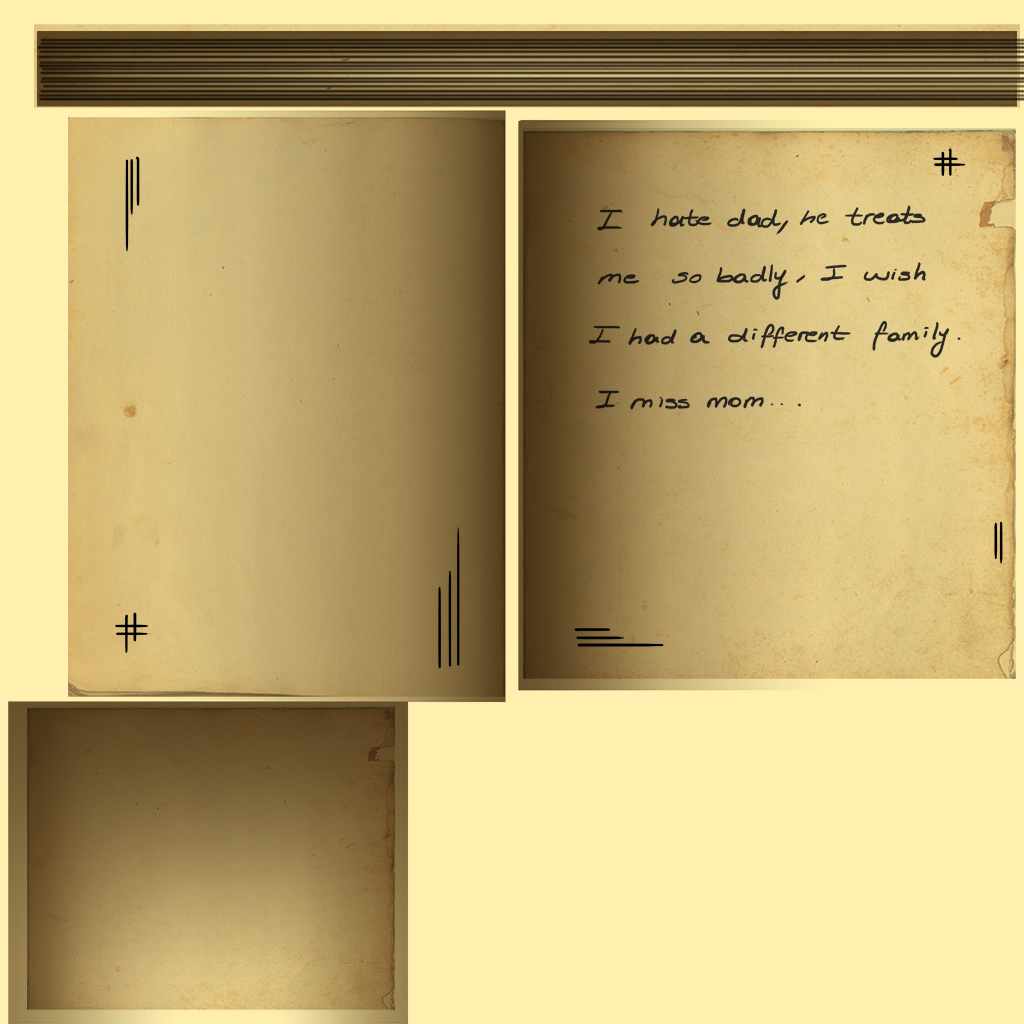 I hate dad, he treats
me so badly, I wish
I had a different family.
I miss mom...